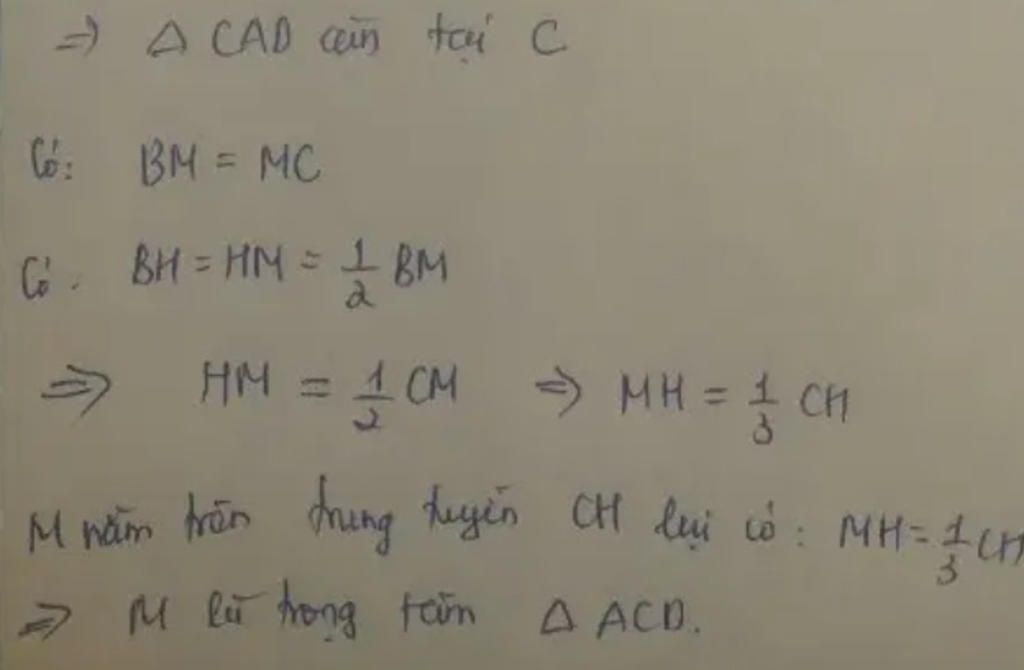 => Δ CAD cân tại C
Có: BM = MC
Có: BH = HM = 1/2 BM
=> HM = 1/2 CM => MH = 1/3 CH
M nằm trên trung tuyến CH lại có: MH = 1/3 CH
=> M là trọng tâm Δ ACD.